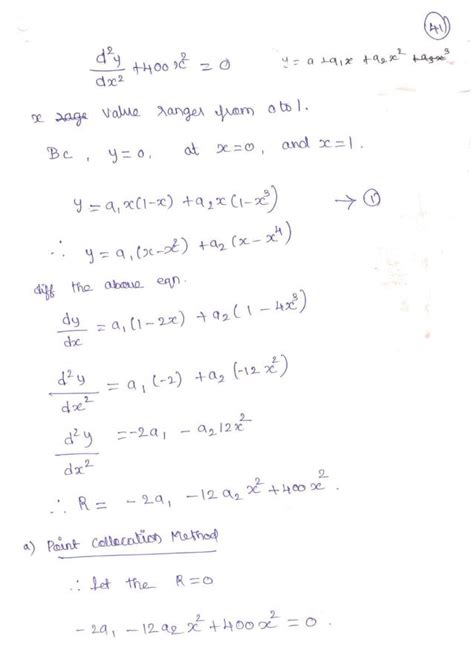 41
d²y/dx² + 400x² = 0 y = a + a₁x + a₂x² + a₃x³
x value ranges from 0 to 1.
Bc, y=0, at x=0, and x=1.
y = a₁x(1-x) + a₂x(1-x³) → ①
∴ y = a₁(x-x²) + a₂(x-x⁴)
diff the above eqn.
dy/dx = a₁(1-2x) + a₂(1-4x³)
d²y/dx² = a₁(-2) + a₂(-12x²)
d²y/dx² = -2a₁ - a₂12x²
∴ R = -2a₁ - 12a₂x² + 400x².
a) Point Collocation Method
∴ Let the R=0
-2a₁ - 12a₂x² + 400x² = 0.